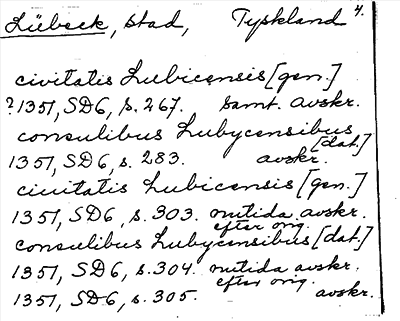 Lübeck, stad, Tyskland 4.
civitatis Lubicensis [gen.]
?1351, SD6, s. 267. samt. avskr.
consulibus Lubycensibus [dat.]
1351, SD6, s. 283. avskr.
civitatis Lubicensis [gen.]
1351, SD6, s. 303. nutida avskr. efter orig.
consulibus Lubycensibus [dat.]
1351, SD6, s. 304. nutida avskr. efter orig.
1351, SD6, s. 305. avskr.